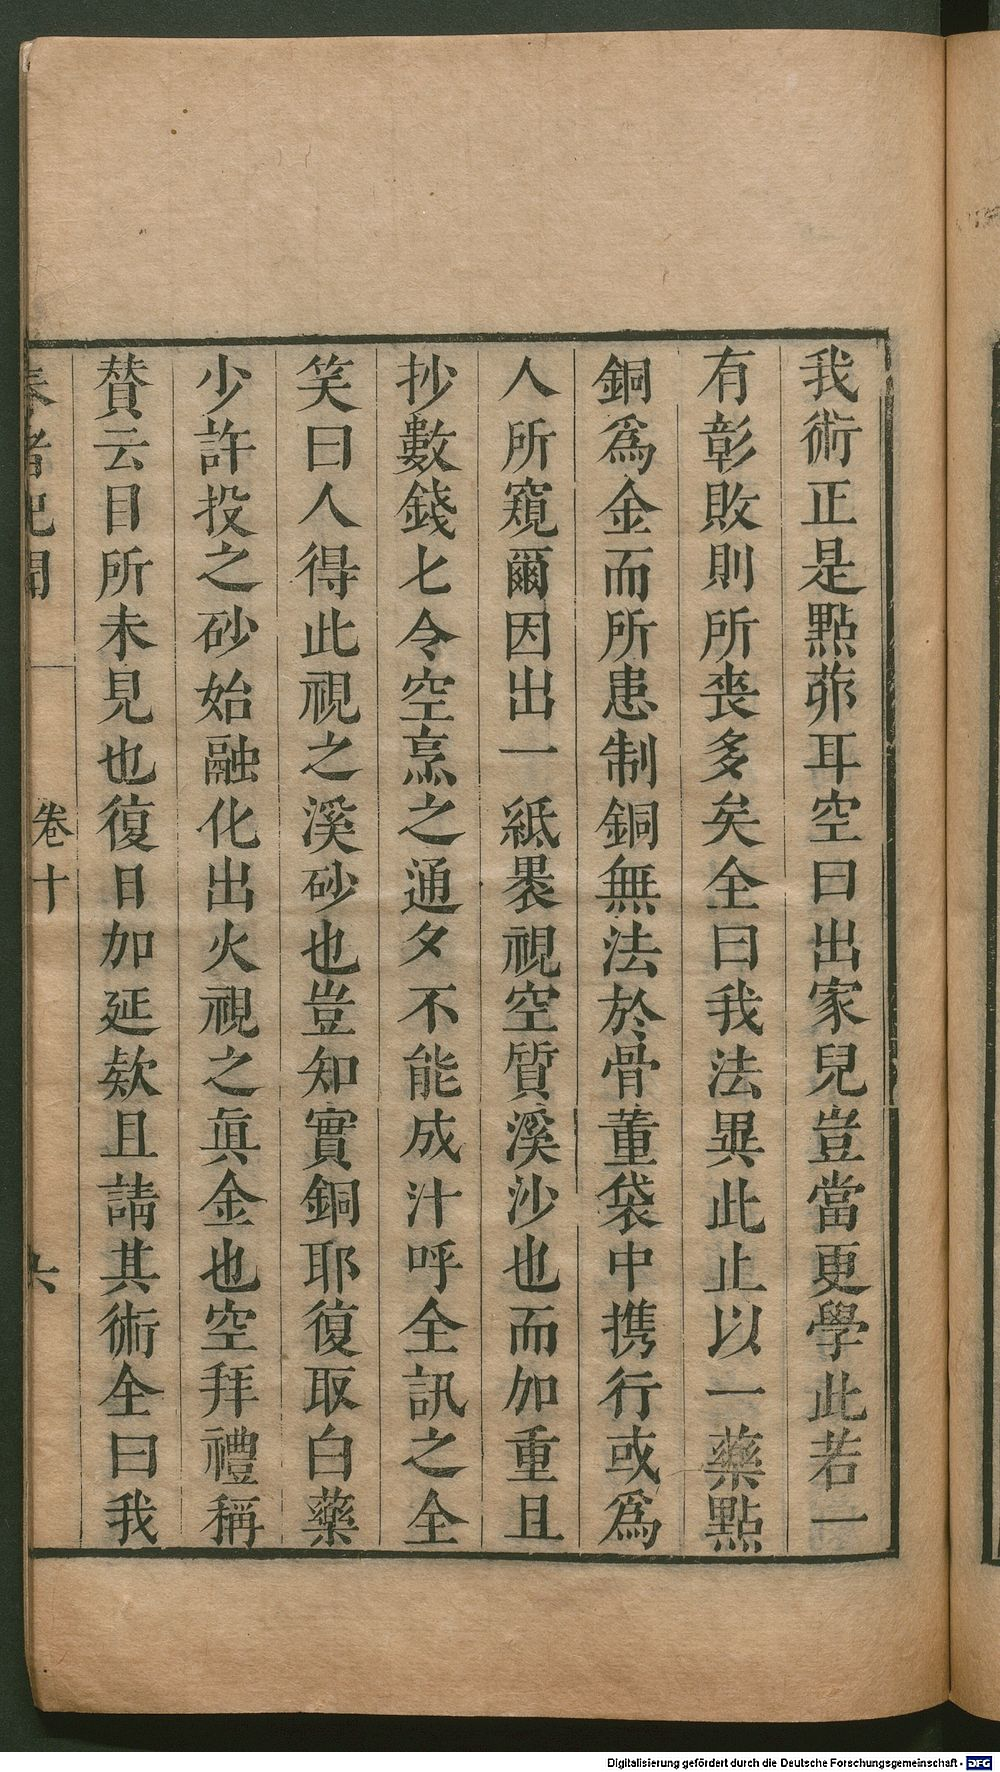 我術正是點茆耳空曰出家兒豈當更學此若一
有彰敗則所丧多矣全曰我法異此止以一藥點
銅爲金而所患制銅無法於骨董袋中携行或爲
人所窺爾因出一紙褁視空質溪沙也而加重且
抄數錢匕令空烹之通夕不能成汁呼全訊之全
笑曰人得此視之溪砂也豈知實銅耶復取白藥
少許投之砂始融化出火視之眞金也空拜禮稱
賛云目所未見也復日加延欵且請其術全曰我
春渚紀聞 卷十 六
Digitalisierung gefördert durch die Deutsche Forschungsgemeinschaft - DFG